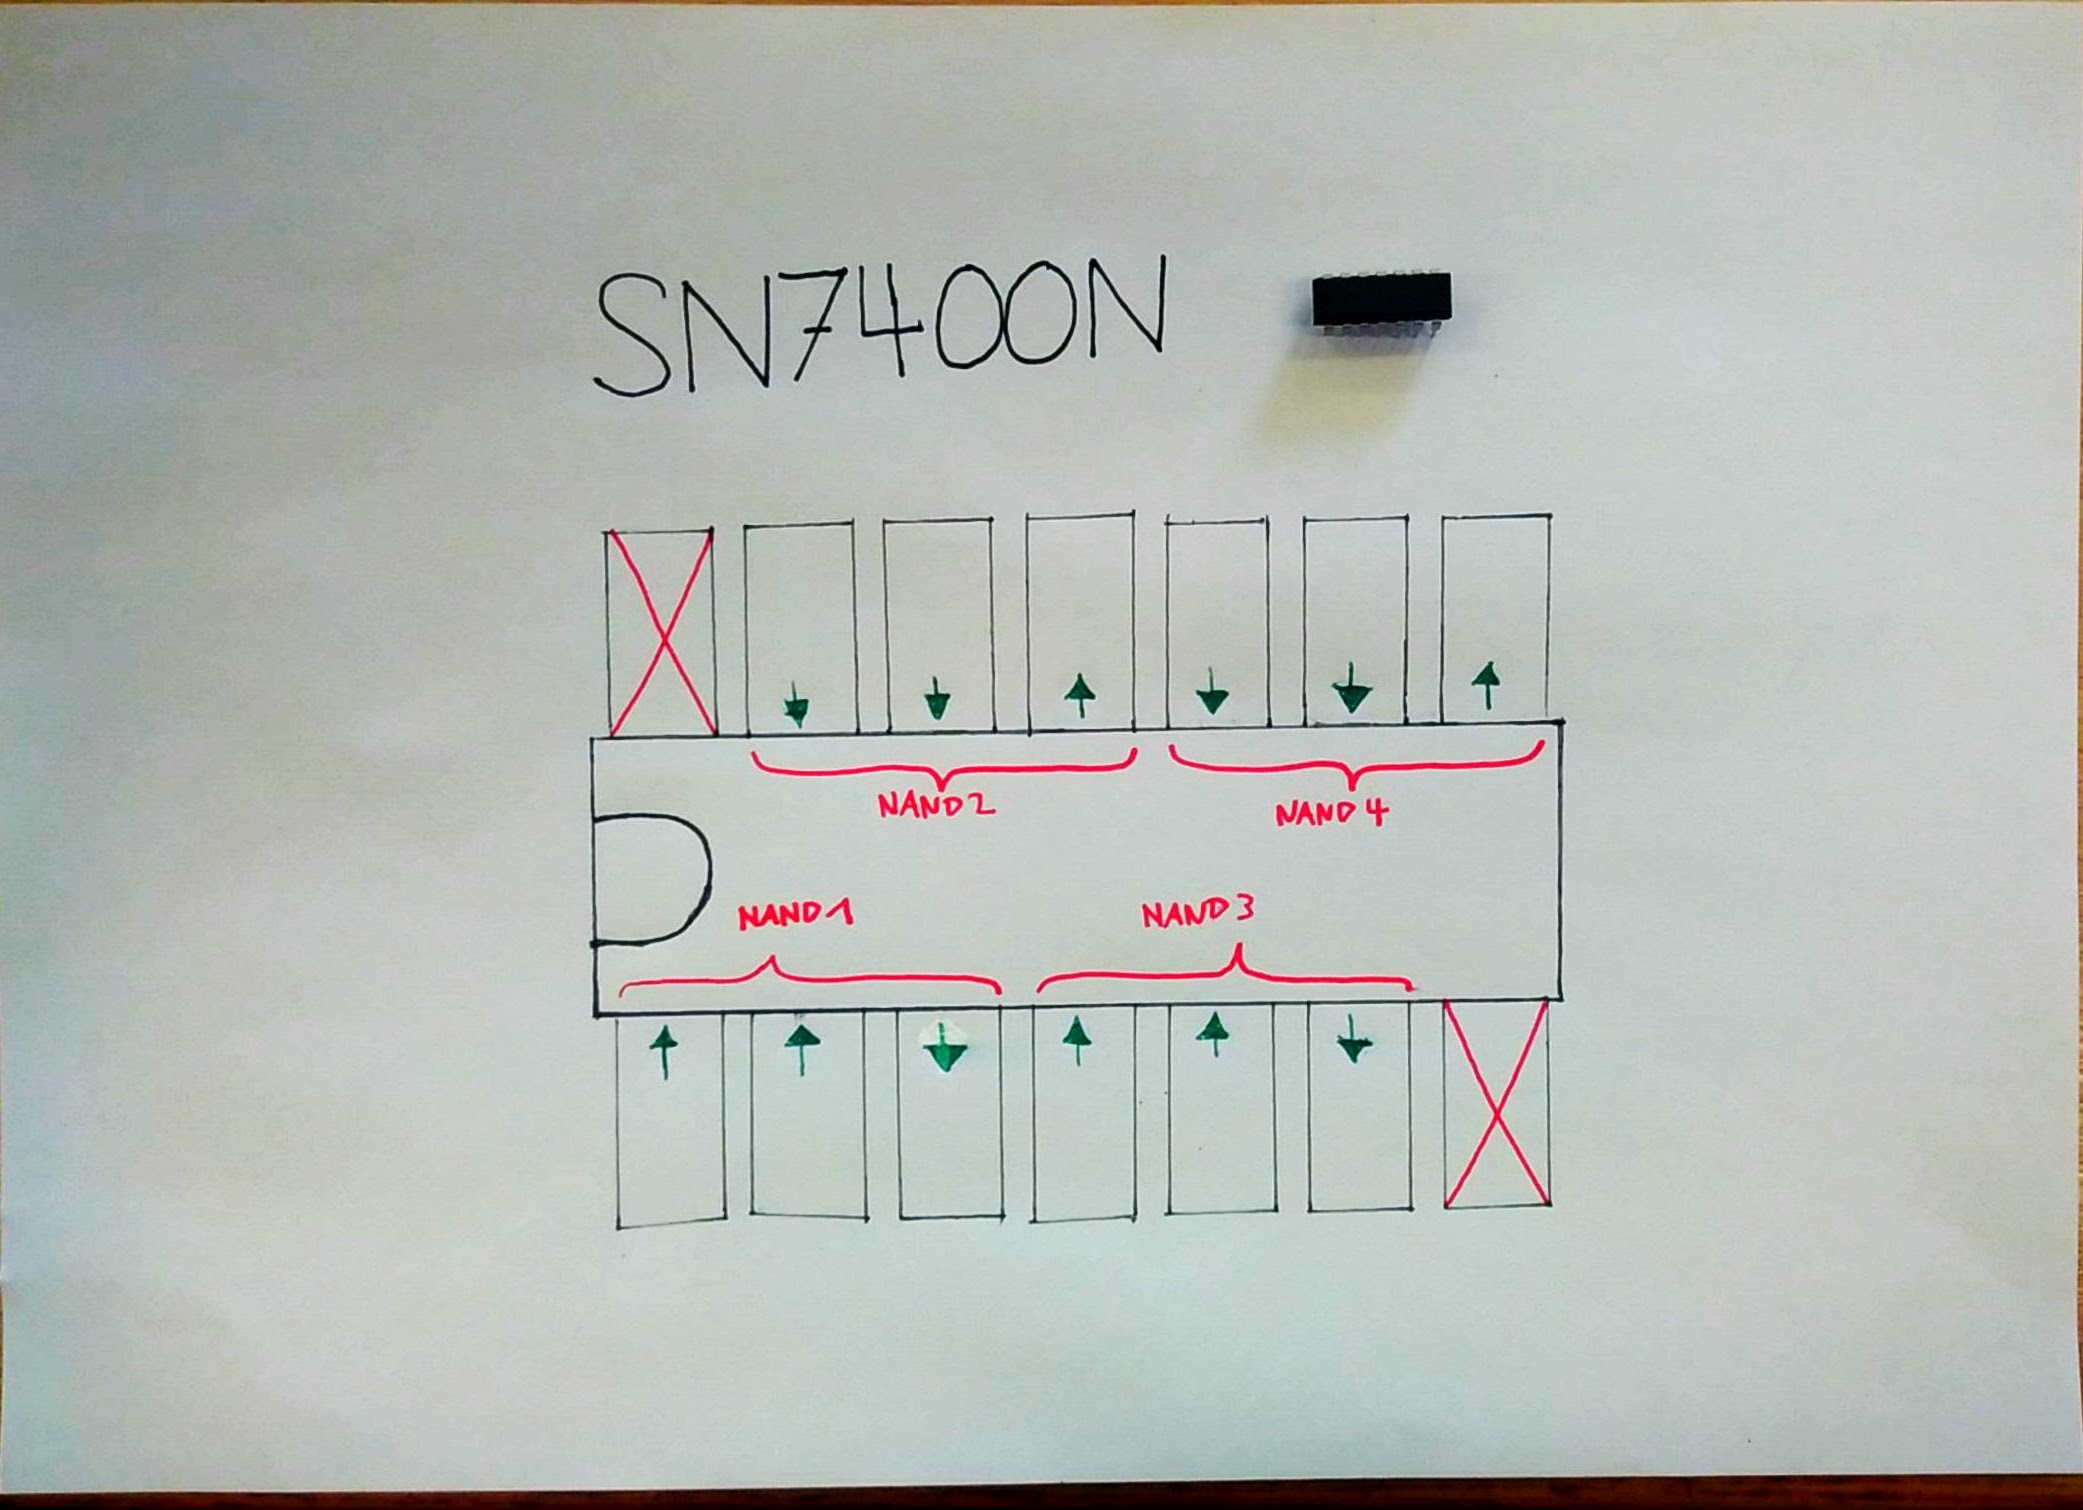 SN7400N
NAND2
NAND4
NAND1
NAND3